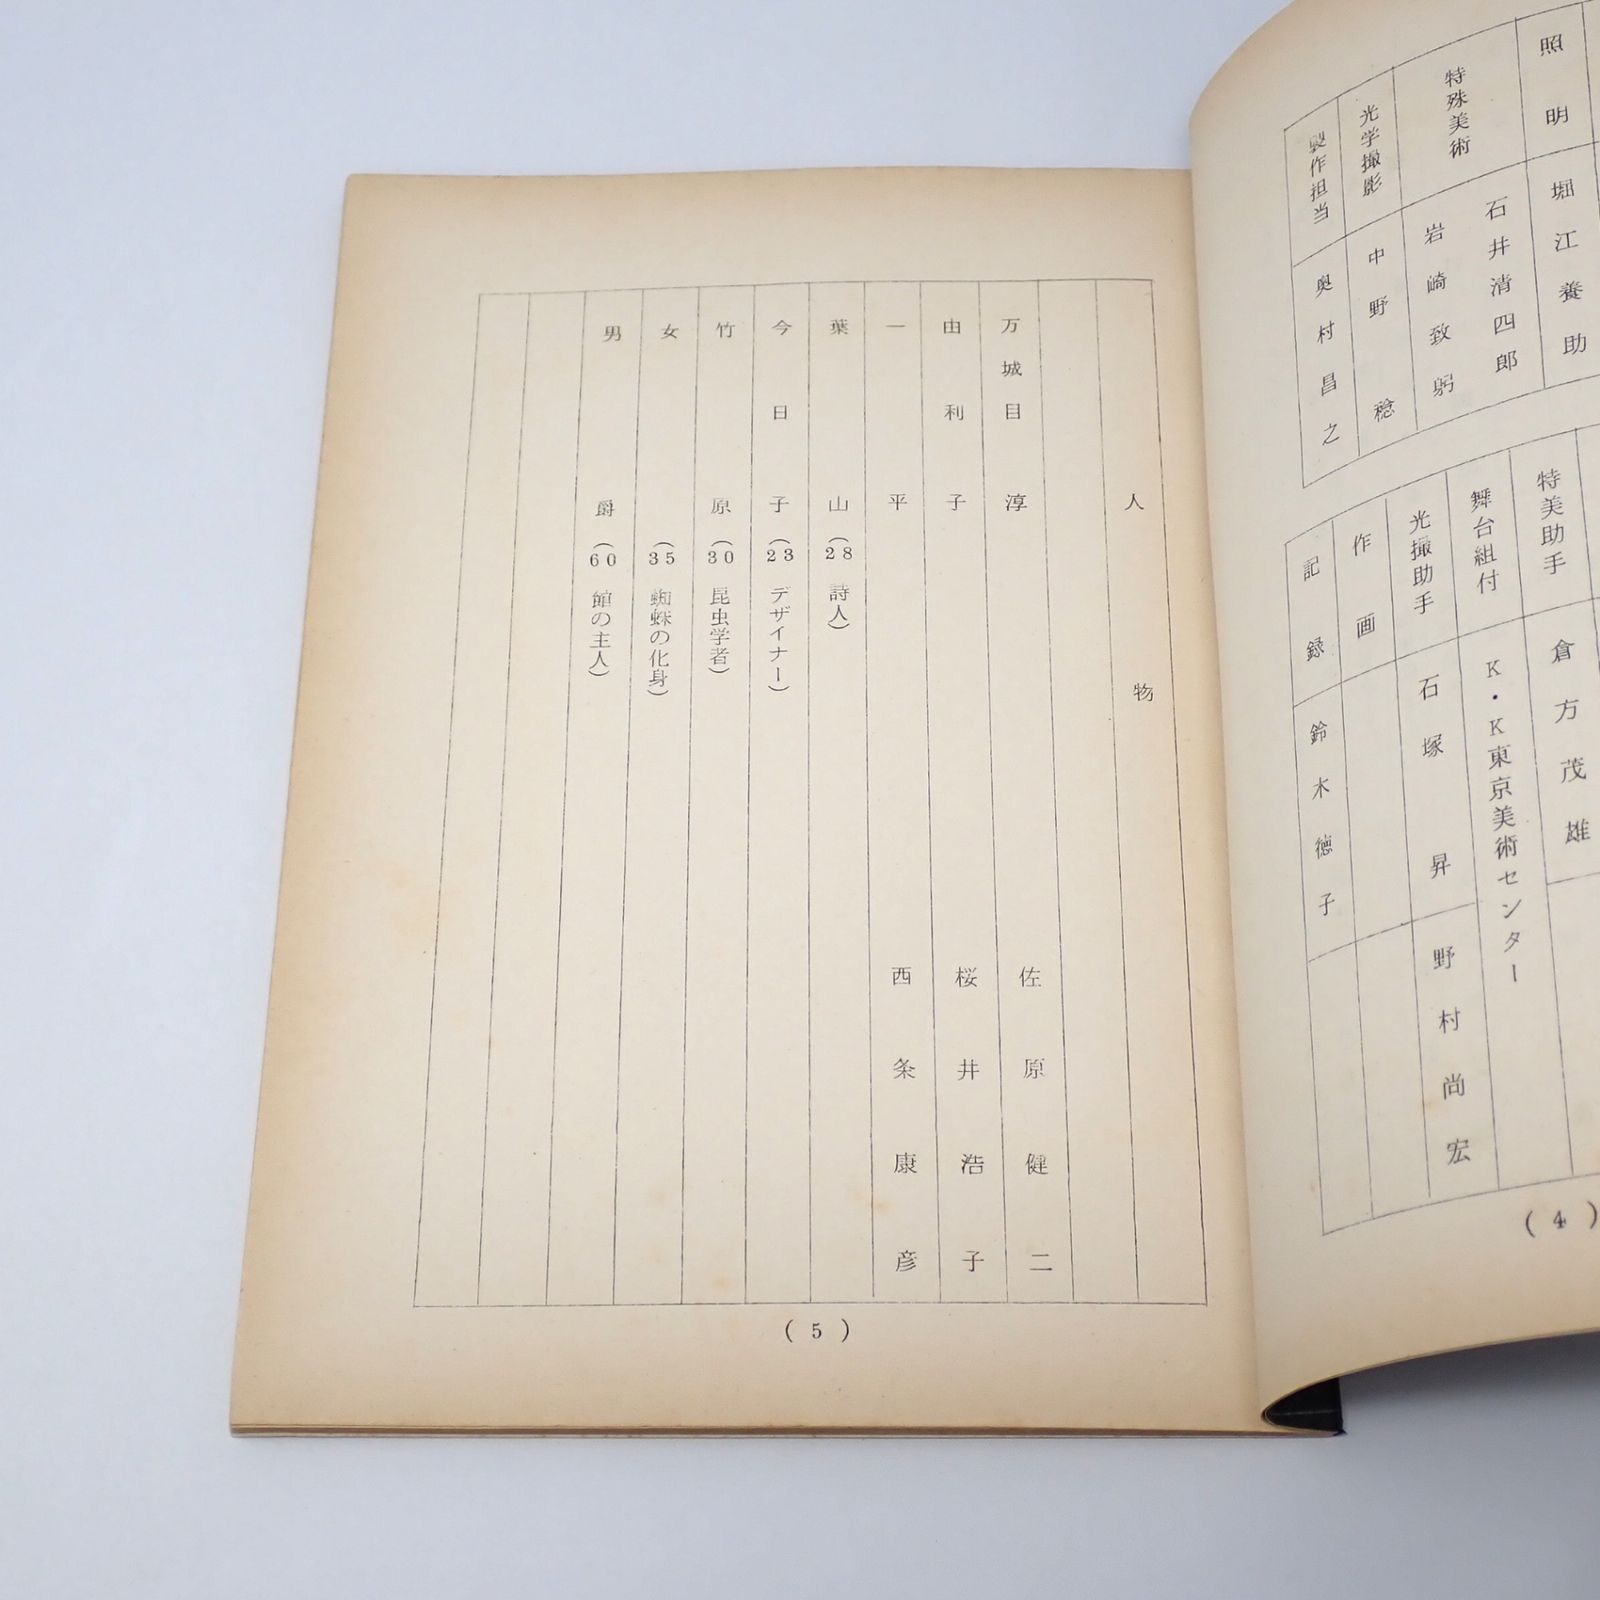 照明 堀江養助
特殊美術 石井清四郎
岩崎致躬
光学撮影 中野稔
製作担当 奥村昌之
特美助手 倉方茂雄
舞台組付 K・K東京美術センター
光撮助手 石塚昇 野村尚宏
作画
記録 鈴木徳子
(4)
人物
万城目淳 佐原健二
由利子 桜井浩子
一平 西条康彦
葉山(28 詩人)
今日子(23 デザイナー)
竹原(30 昆虫学者)
女(35 蜘蛛の化身)
男爵(60 館の主人)
(5)